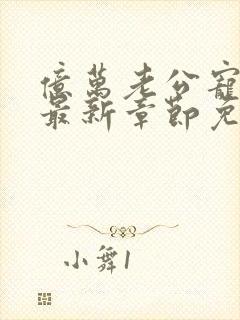 億萬老公寵
最新章節免
小舞1